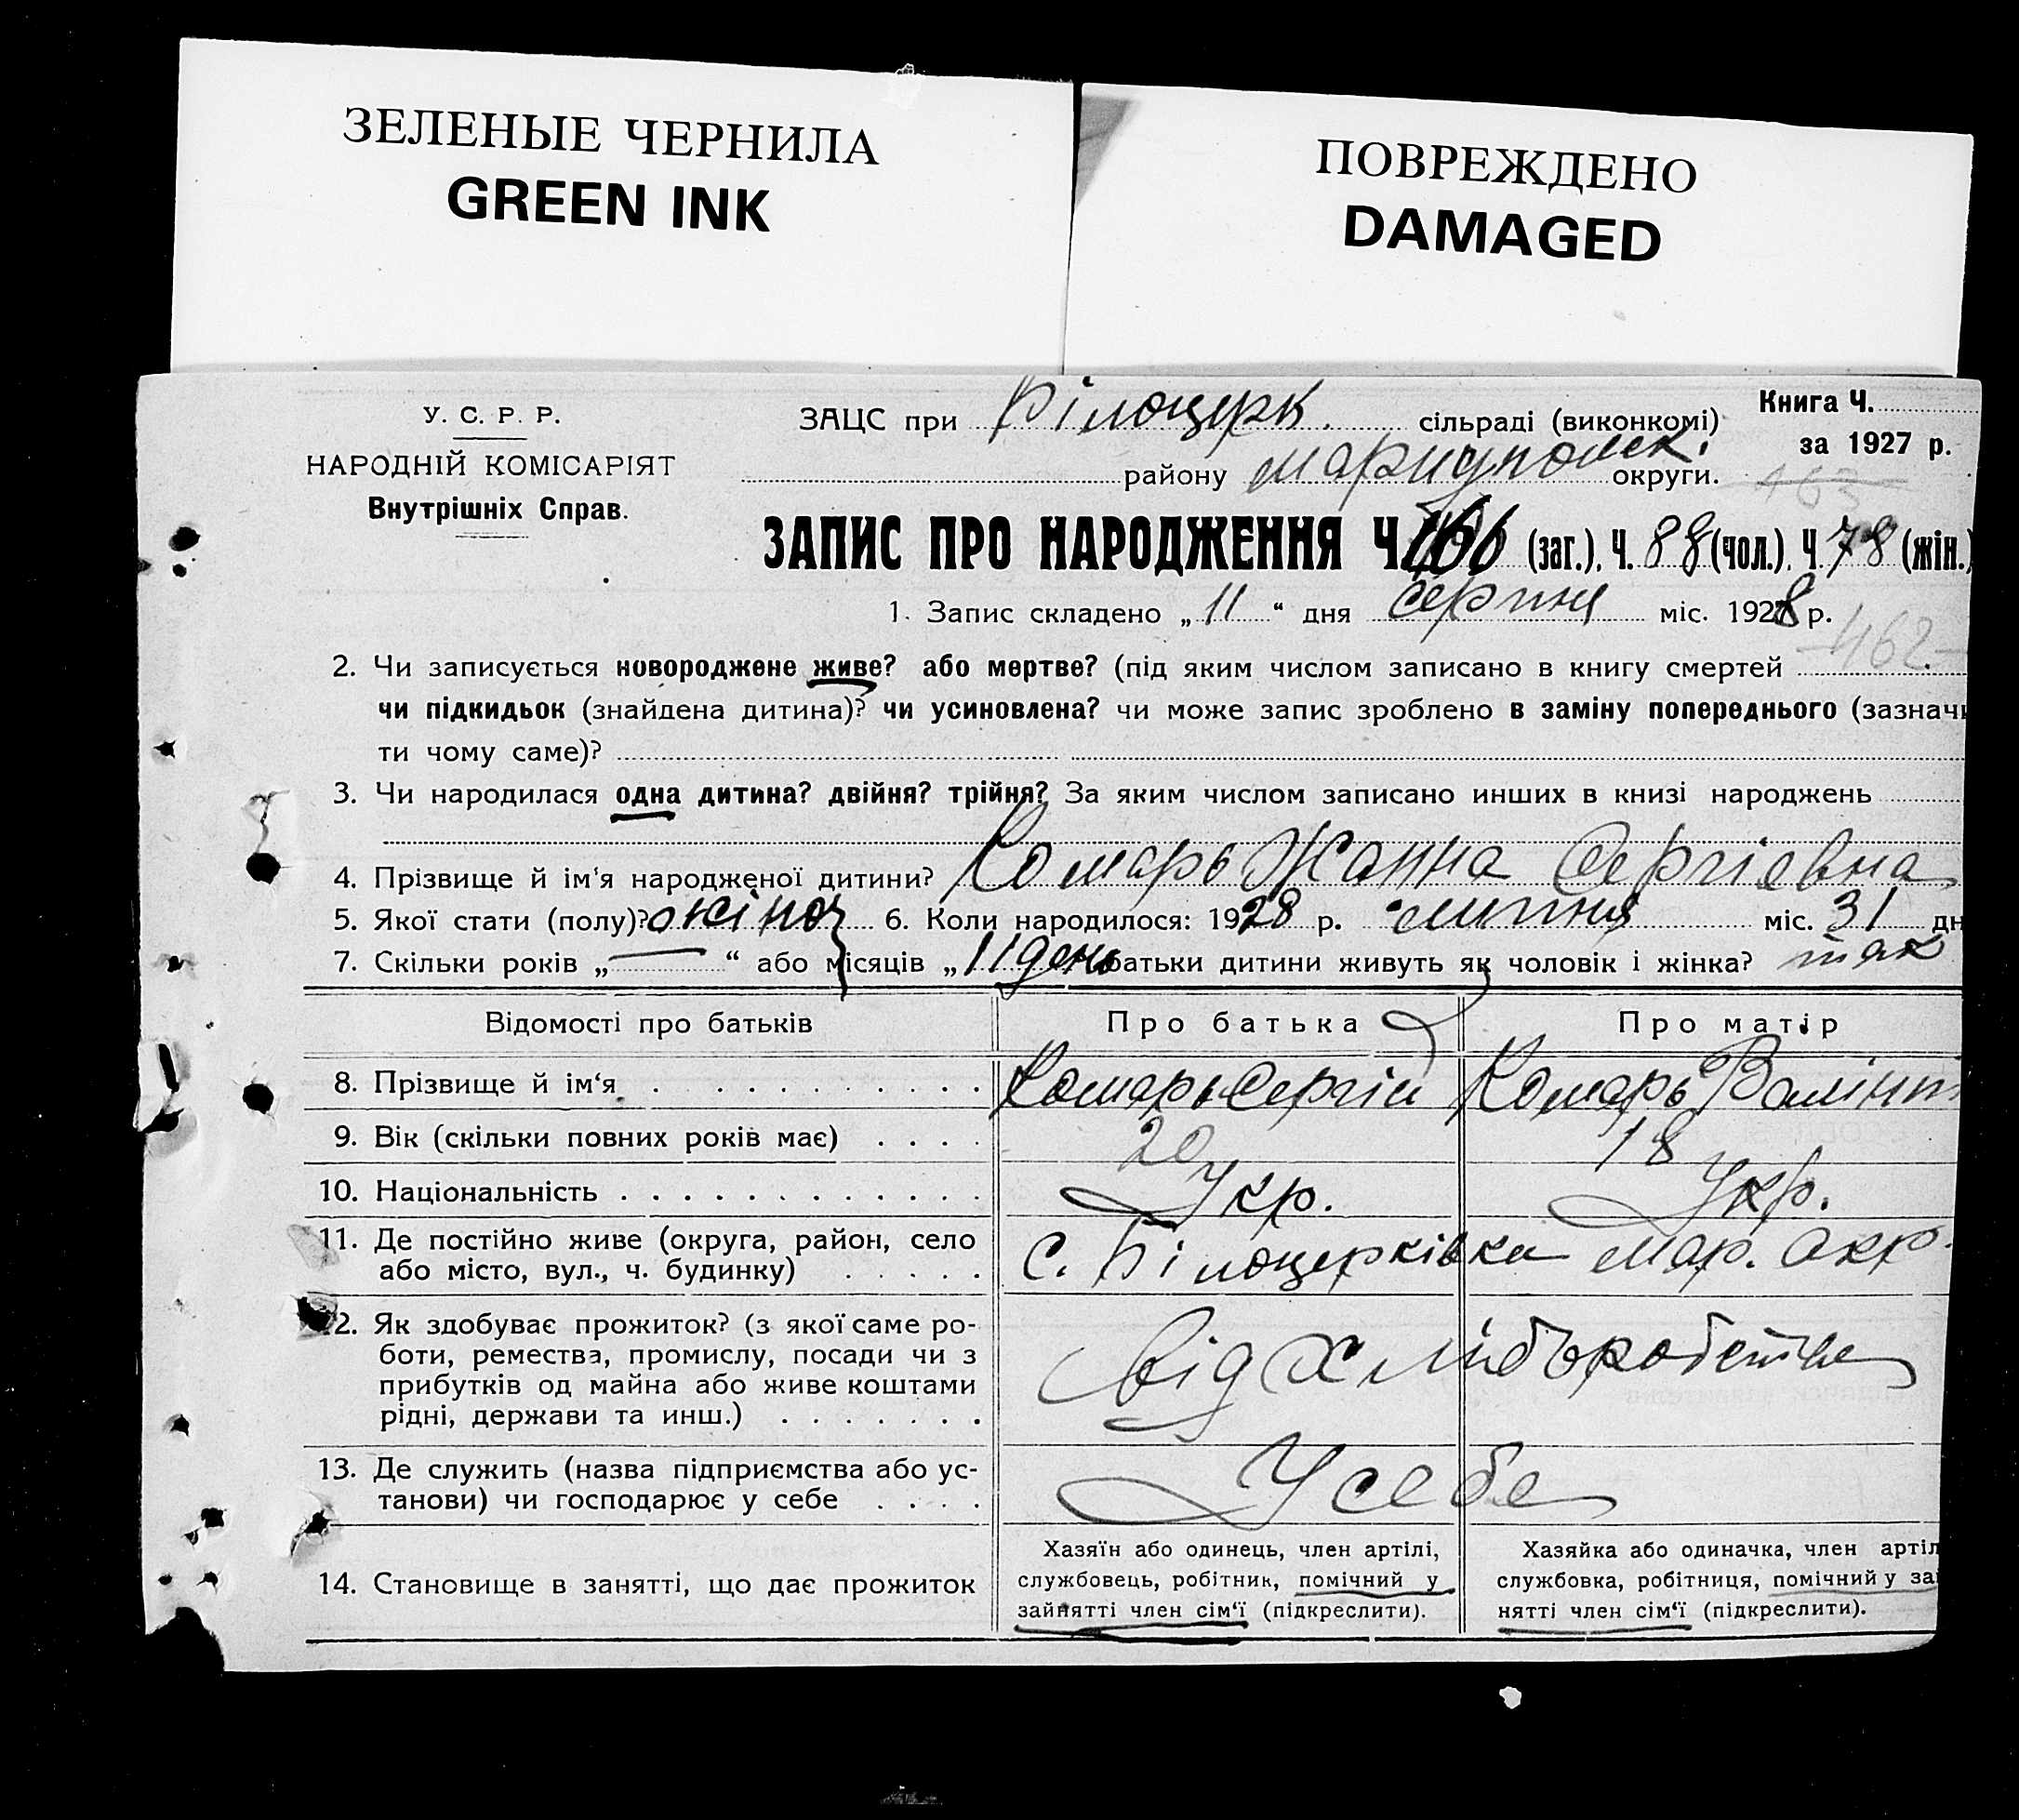 ЗЕЛЕНЫЕ ЧЕРНИЛА
GREEN INK
ПОВРЕЖДЕНО
DAMAGED
У. С. Р. Р.
НАРОДНІЙ КОМІСАРІЯТ
Внутрішніх Справ.
ЗАЦС при Білоцерк. сільраді (виконкомі)
Книга Ч.
за 1927 р.
району Мариупольск. округи.
463
ЗАПИС ПРО НАРОДЖЕННЯ Ч. 166 (заг.). Ч. 88 (чол.). Ч. 78 (жін.)
1. Запис складено „ 11 “ дня серпня міс. 1928 р.
462
2. Чи записується новороджене живе? або мертве? (під яким числом записано в книгу смертей
чи підкидьок (знайдена дитина)? чи усиновлена? чи може запис зроблено в заміну попереднього (зазначи
ти чому саме)?
3. Чи народилася одна дитина? двійня? трійня? За яким числом записано инших в книзі народжень
4. Прізвище й ім'я народженої дитини? Комарь Жанна Сергіевна
5. Якої стати (полу)? жіноч 6. Коли народилося: 1928 р. липня міс. 31 дн
7. Скільки років „ — “ або місяців „ 11 день батьки дитини живуть як чоловік і жінка? так
Відомості про батьків Про батька Про матір
8. Прізвище й ім‘я Комарь Сергій Комарь Валінт
9. Вік (скільки повних років має) 20 18
10. Національність Укр. Укр.
11. Де постійно живе (округа, район, село
або місто, вул., ч. будинку) с. Білоцерківка Мар. Окр.
12. Як здобуває прожиток? (з якої саме ро-
боти, ремества, промислу, посади чи з
прибутків од майна або живе коштами
рідні, держави та инш.)
від хлібъробства
13. Де служить (назва підприємства або ус-
танови) чи господарює у себе
У себе
14. Становище в занятті, що дає прожиток
Хазяїн або одинець, член артілі,
службовець, робітник, помічний у
зайнятті член сім‘ї (підкреслити).
Хазяйка або одиначка, член артіл
службовка, робітниця, помічний у зай
нятті член сім‘ї (підкреслити).